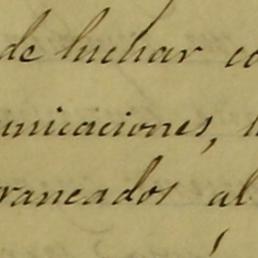 de luchar co
unicaciones, l
raneados al